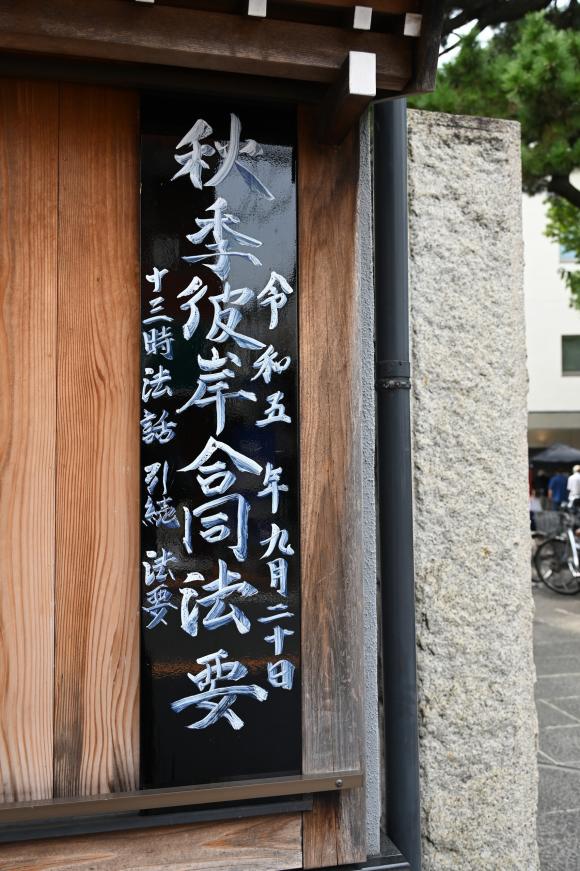 令和五年九月二十日
秋季彼岸合同法要
十三時 法話 引続 法要